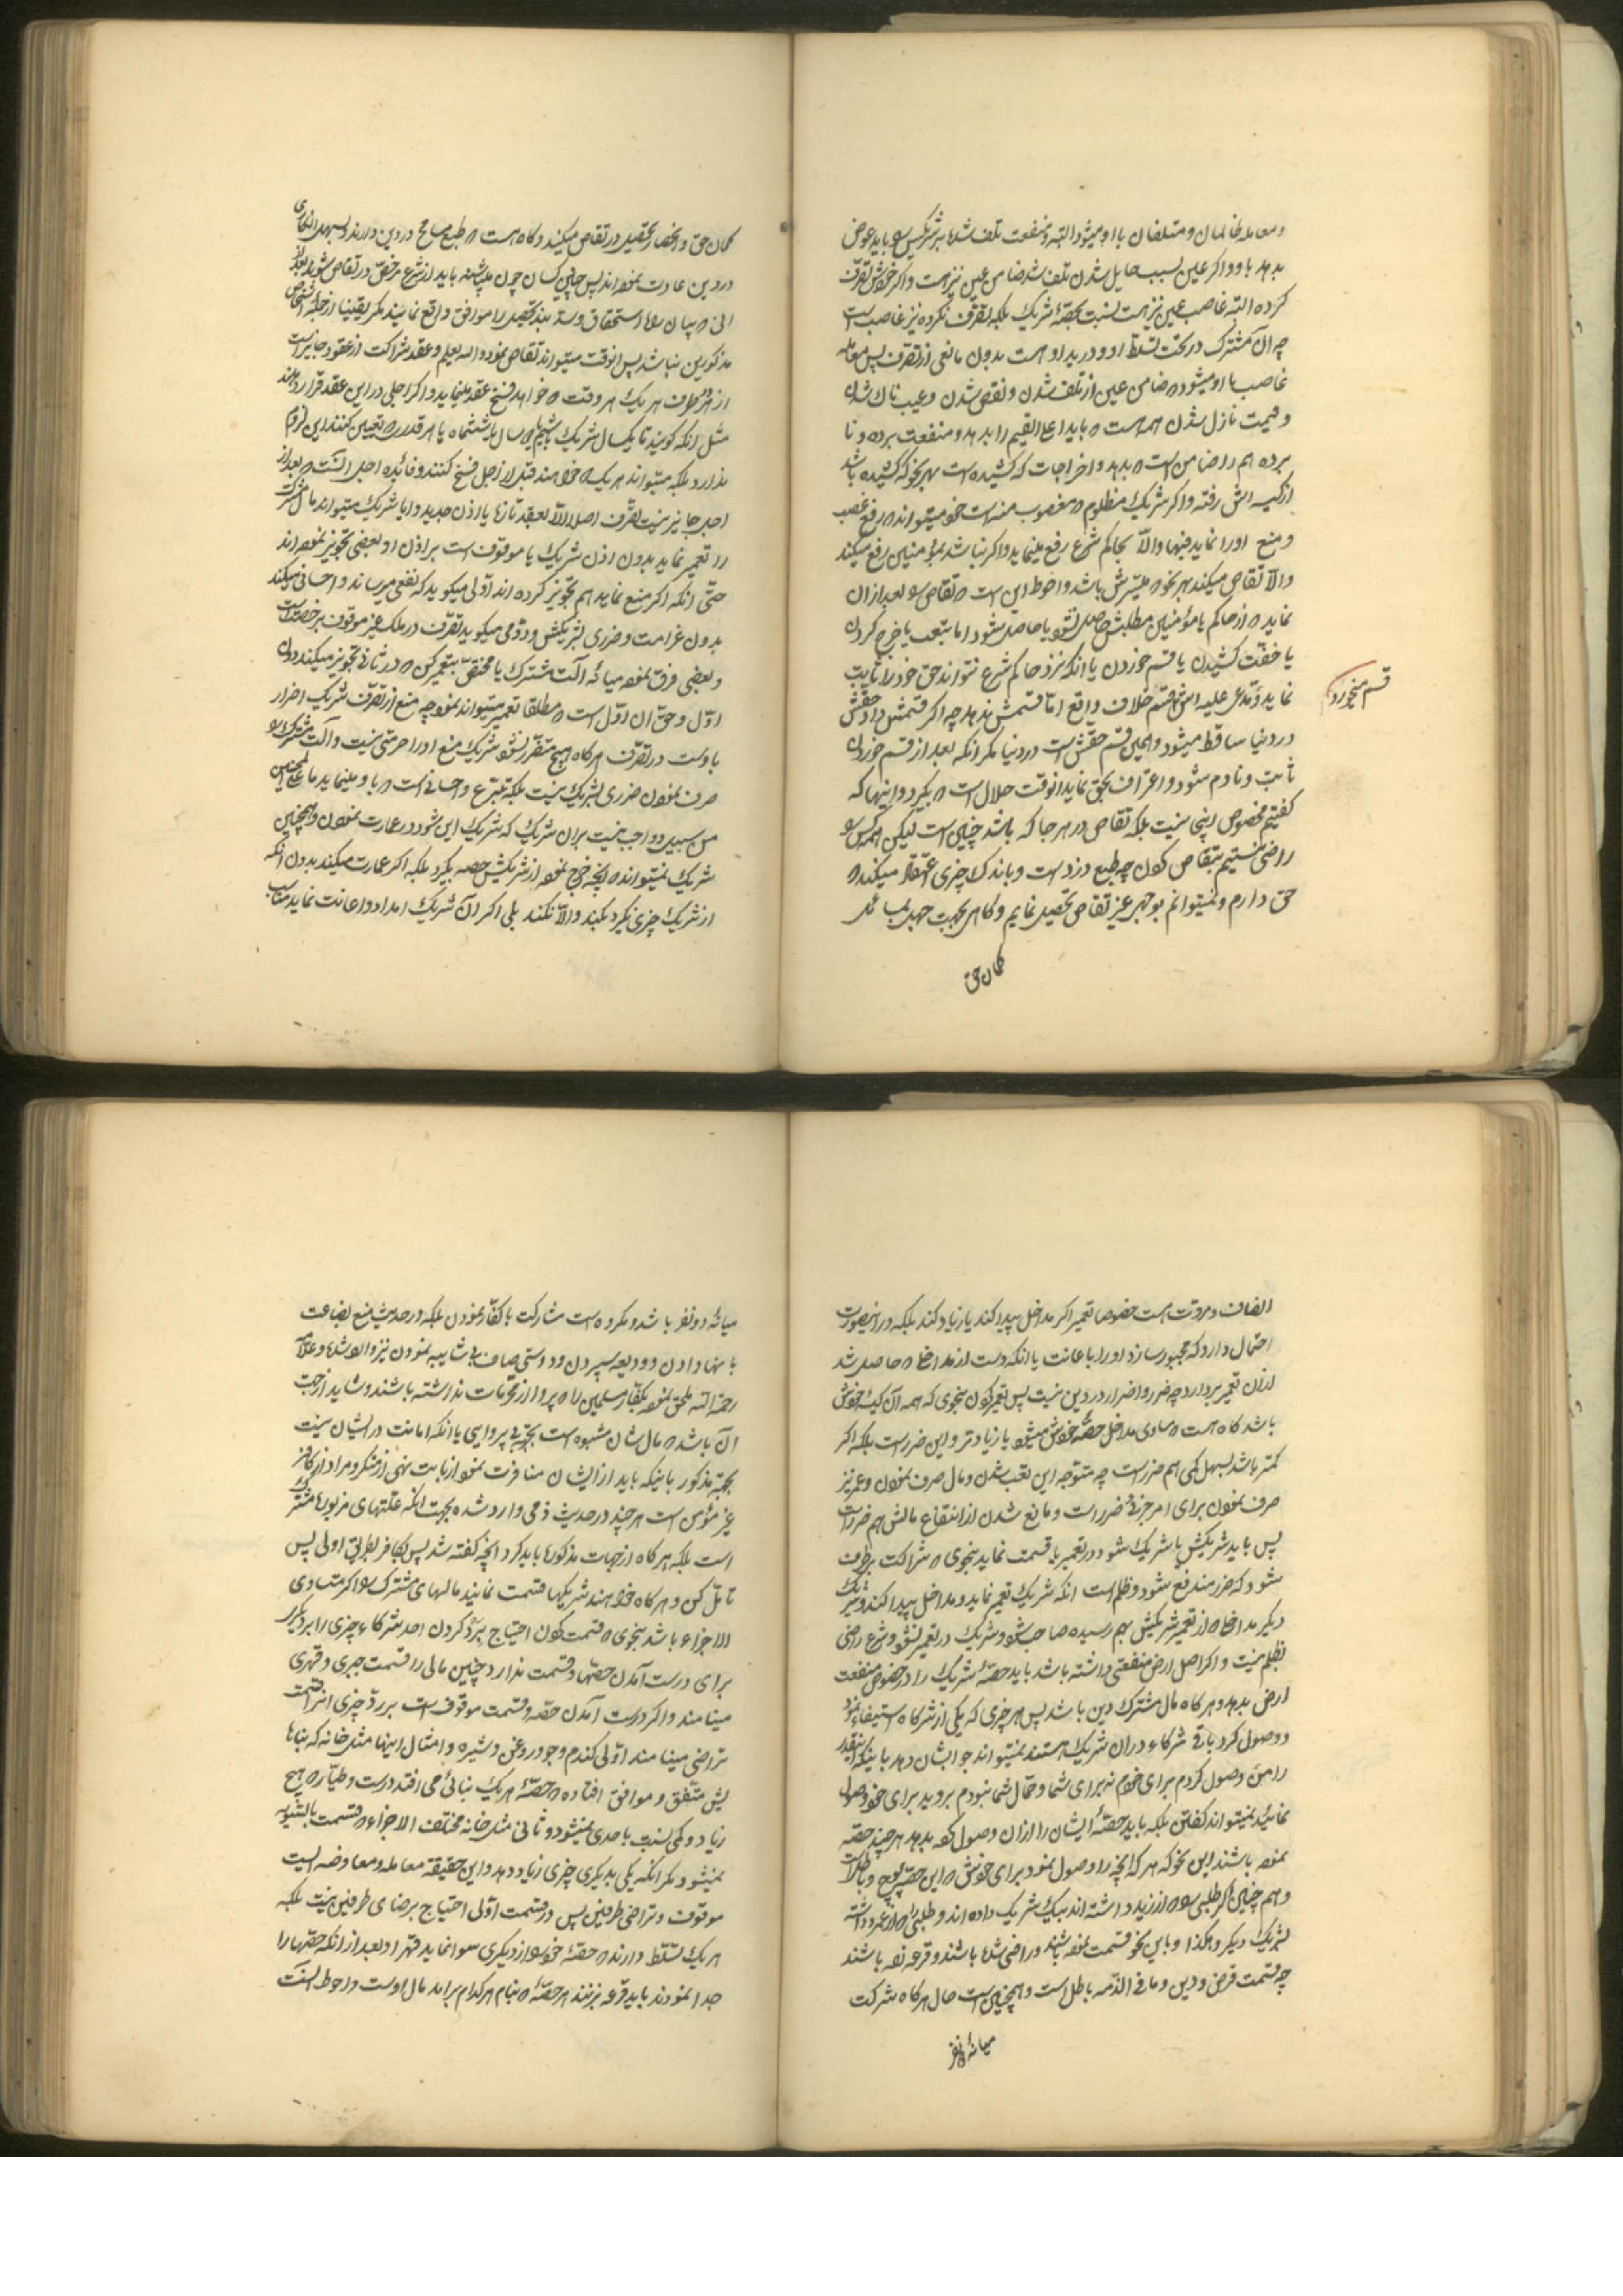 ومعامله ظالمان ومتلفان با او میشود البته ومنفعت تلف شده بر شریکیس را باید عوض
بدهد باو واکر عین بسبب حایل شدن تلف شد ضامن عین نیز هست واکر خودش تصرف
کرده البته غاصب عین نیز هست نسبت بحصّهٔ شریک بلکه تصرف نکرده نیز غاصب است
چه آن مشترک در تحت تسلّط او ودر ید او هست بدون مانعی از تصرف پس معامله
غاصب با او میشود ه ضامن عین از تلف شدن ونقص شدن وعیب ناک شدن
وقیمت نازل شدن همه هست ه باید اعلا القیم را بدهد ومنفعت برده ونا
برده هم را ضامن است ه بدهد واخراجات که کشیده است بهر نحو که کشیده باشد
از کیسه اش رفته واکر شریک مظلوم ه مغصوب منه است خود میتواند ه رفع غصب
ومنع اورا نماید فبها والّا بحاکم شرع رفع مینماید واکر نباشد بمؤمنین رفع میکند
والّا تقاص میکند بهر نحو ه میسّرش باشد واحوط این است ه تقاص را بعد از ان
نماید ه از حاکم یا مؤمنین مطلبش حاصل نشود یا حاصل بشود اما بتعب یا خرج کردن
یا خفّت کشیدن یا قسم خوردن یا انکه نزد حاکم شرع نتواند حق خود را ثابت
نماید ومدعی علیه اش قسم خلاف واقع امّا قسمش ندهد چه اکر قسمش داد حقّش
قسم میخورد
در دنیا ساقط میشود وهمین قسم حقّش است در دنیا مکر انکه بعد از قسم خوردن
تائب ونادم شود واعتراف بحق نماید انوقت حلال است ه بکیرد واینها که
کفتیم مخصوص اینجا نیست بلکه تقاص در هر جا که باشد چنین است لیکن همه کس را
راضی نیستیم بتقاص کردن چه طبع دزد است وباندک چیزی اعتقاد میکند ه
حق دارم ونمیتوانم بوجهی غیر تقاص تحصیل نمایم وکاهی بجهت جهل بسا
کمان حق
کمان حق وانحصار تحصیل در تقاص میکنید وکاه هست ه طبع مسامح در دین دارند وبسهل انکاری
در دین عادت نموده اند پس چنین کسان چون باید از شرع مرخص در تقاص شوند بعد از
انی ه بیان را استحقاق وسدّ تحصیل را موافق واقع نمایند مکر یقینا از جمله اشخاص
مذکورین نباشد پس انوقت میتواند تقاص نمود والله یعلم وعقد شراکت از عقود جایز است
از هر طرف هر یک هر وقت ه خواهد فسخ عقد مینماید واکر اجلی در این عقد قرار دهند
مثل انکه کویند تا یکسال شریک باشیم یا دو سال یا ششماه یا هر قدر ه تعیین کنند این لزوم
ندارد بلکه میتواند هر یک ه خواهند قبل از اجل فسخ کنند وفائده اجل انست ه بعد از
اجل جایز نیست تصرف اصلا الّا بعقد تازه یا اذن جدید وایا شریک میتواند مال شرکت
را تعمیر نماید بدون اذن شریک یا موقوف است بر اذن او بعضی تجویز نموده اند
حتّی انکه اکر منع نماید هم تجویز کرده اند اوّلی میکوید که نفع میرساند واحسانی میکند
بدون غرامت وضرری بشریکش ودوّمی میکوید تصرف در ملک غیر موقوف برخصت است
وبعضی فرق نموده میانهٔ آلت مشترک یا مختصّ بتعمیر کن ه در ثانی تجویز میکند دون
اوّل وحق ان اوّل است ه مطلقا تعمیر میتواند نمود چه منع از تصرف شریک اضرار
باوست در تصرف هرکاه هیچ متضرّر نشود شریک منع اورا حرمتی نیست وآلت مشترک را
صرف نمودن ضرری بشریک نیست بلکه تبرّع واحسانی است ه باو مینماید ما علی المحسنین
من سبیل وواجب نیست بران شریک که شریک این شود در عمارت نمودن وهمچنین
شریک نمیتواند ه انچه خرج نموده از شریکش حصه بکیرد بلکه اکر عمارت میکند بدون انکه
از شریک چیزی بکیرد بکند والّا نکند بلی اکر ان شریک امداد واعانت نماید مناسب
انصاف ومروّت هست خصوصا تعمیر اکر مداخل پیدا کند یا زیاد کند بلکه در اینصورت
احتمال دارد که مجبور سازد اورا باعانت یا انکه دست از مداخل ه حاصل شد
از ان تعمیر بردارد چه ضرر واضرار در دین نیست پس تعمیر کردن بنحوی که همه آن کیسهٔ خودش
باشد کاه هست ه مساوی مداخل حصّهٔ خودش میشود یا زیادتر واین ضرر است بلکه اکر
کمتر باشد بسهل کمی هم ضرر است چه متوجه این تعب شدن ومال صرف نمودن وعمر نیز
صرف نمودن برای امر جزئی ضرر است ومانع شدن از انتفاع مالش هم ضرر است
پس باید شریکش یا شریک شود در تعمیر یا قسمت نماید بنحوی ه شراکت برطرف
شود که ضررمند رفع شود وظلم است انکه شریک تعمیر نماید ومداخل پیدا کند وشریک
دیکر مداخل ه از تعمیر شریکش بهم رسیده صاحب شود وشریک در تعمیر نشود وشرع راضی
بظلم نیست واکر اصل ارض منفعتی داشته باشد باید حصّهٔ شریک را در خصوص منفعت
ارض بدهد وهرکاه مال مشترک دین باشد پس هر چیزی که یکی از شرکاء استیفاء نمود
ووصول کرد باقی شرکاء در ان شریک هستند نمیتواند جوابشان دهد باینکه اینقدر
را من وصول کردم برای خودم نه برای شما وحمّال شما نبودم بروید برای خود وصول
نمائید نمیتواند کفتن بلکه باید حصّهٔ ایشان را از ان وصول کرده بدهد هر چند حصّه
نموده باشند این نحو که هر که انچه را وصول نمود برای خودش ه این حصّه پوچ وباطل است
وهم چنین اکر طلبی را ه از زید داشته اند بیک شریک داده اند وطلبی را ه از عمرو داشته
بشریک دیکر وهکذا وباین نحو قسمت نموده باشند وراضی شده باشند وقرعه زده باشند
چه قسمت قرض ودین وما فی الذّمه باطل است وهمچنین است حال هرکاه شرکت
میانهٔ دو نفر
میانهٔ دو نفر باشد ومکروه است مشارکت با کفّار نمودن بلکه در حدیث منع بضاعت
باینها دادن وودیعه سپردن ودوستی صاف بی شایبه نمودن نیز وارد شده وعلّامه
رحمه الله ملحق نموده بکفّار مسلمین را ه پروا از محرّمات نداشته باشند وشاید از جهت
آن باشد ه مال شان مشبوه است بجهة بی پروایی یا انکه امانت در ایشان نیست
بجهة مذکور باینکه باید از ایشان منافرت نمود از بابت نهی از منکر ومراد از کافر
غیر مؤمن است هر چند در حدیث ذمی وارد شده بجهت انکه علّتهای مزبوره مشترک
است بلکه هرکاه از جهات مذکوره باید کرد انچه کفته شد پس بکافر بطریق اولی پس
تامّل کن وهرکاه خواهند شریکها قسمت نمایند مالهای مشترک را اکر متساوی
الاجزاء باشد بنحوی ه قسمت کردن احتیاج بردّ کردن احد شرکاء چیزی را بر دیکر
برای درست آمدن حصّها وقسمت ندارد چنین مالی را قسمت جبری وقهری
مینامند واکر درست آمدن حصّه وقسمت موقوف است بر ردّ چیزی انرا قسمت
تراضی مینامند اوّلی کندم وجو وروغن وشیره وامثال اینها مثل خانه که بناها
یش متّفق وموافق افتاده ه حصّهٔ هر یک بنائی می افتد درست وطیّار ه هیچ
زیاد وکمی نسبت باحدی نمیشود وثانی مثل خانه مختلف الاجزاء ه قسمت بالسّویه
نمیشود مکر انکه یکی بدیکری چیزی زیاد دهد واین حقیقة معامله ومعاوضه ایست
موقوف وتراضی طرفین پس در قسمت اوّلی احتیاج برضای طرفین نیست بلکه
هر یک تسلّط دارند ه حصّهٔ خود را از دیکری سوا نماید قهرا وبعد از انکه حصّها را
جدا نمودند باید قرعه بزنند هر حصّهٔ ه بنام هر کدام براید مال اوست واحوط انست